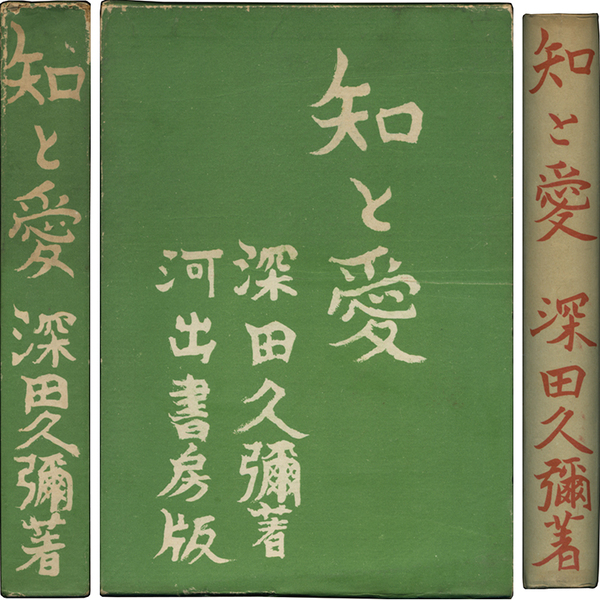 知と愛 深田久彌著
知と愛
深田久彌著
河出書房版
知と愛 深田久彌著